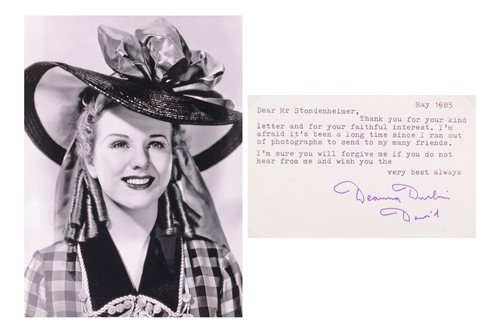 May 1985
Dear Mr Stondenheimer,
Thank you for your kind
letter and for your faithful interest. I'm
afraid it's been a long time since I ran out
of photographs to send to my many friends.
I'm sure you will forgive me if you do not
hear from me and wish you the
very best always
Deanna Durbin
David